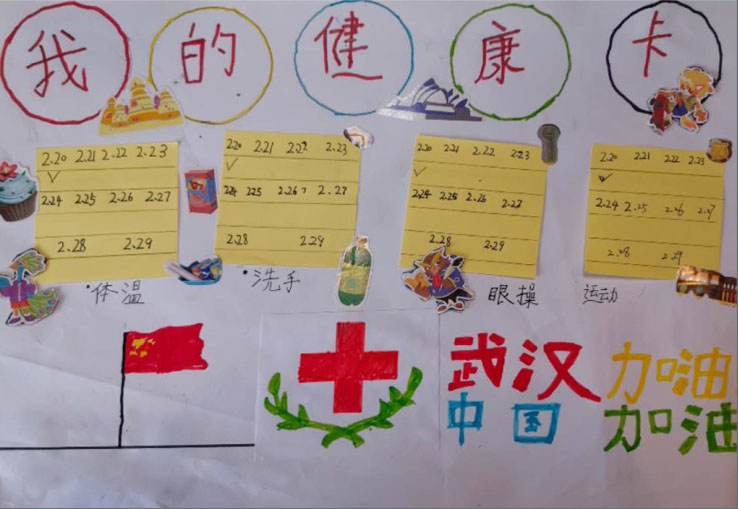 我的健康卡
2.20 2.21 2.22 2.23
✓
2.24 2.25 2.26 2.27
2.28 2.29
·体温
2.20 2.21 2.22 2.23
✓
2.24 2.25 2.26 2.27
2.28 2.29
·洗手
2.20 2.21 2.22 2.23
✓
2.24 2.25 2.26 2.27
2.28 2.29
眼操
2.20 2.21 2.22 2.23
✓
2.24 2.25 2.26 2.27
2.28 2.29
运动
武汉加油
中国加油